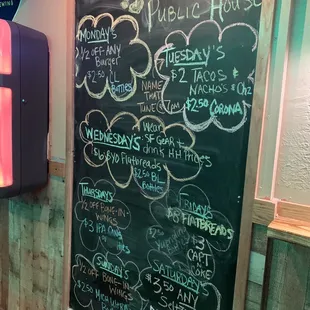 Public House
Monday's
1/2 off Any
Burger
$2.50 BL
Bottles
Name
That
Tune @ 7pm
Tuesday's
$2 Tacos
Nacho's
$2.50 Corona
Wednesday's
Wear
SF Gear +
drink HH Prices
$6 BYO Flatbreads
$2.50 BL
Bottles
Thursday's
1/2 off Bone-in
Wings
$3 IPA
Friday's
Flatbreads
$3
Capt
N
Koke
Sunday's
1/2 off Bone-in
Wings
$2.50
Saturday's
$3.50 Any